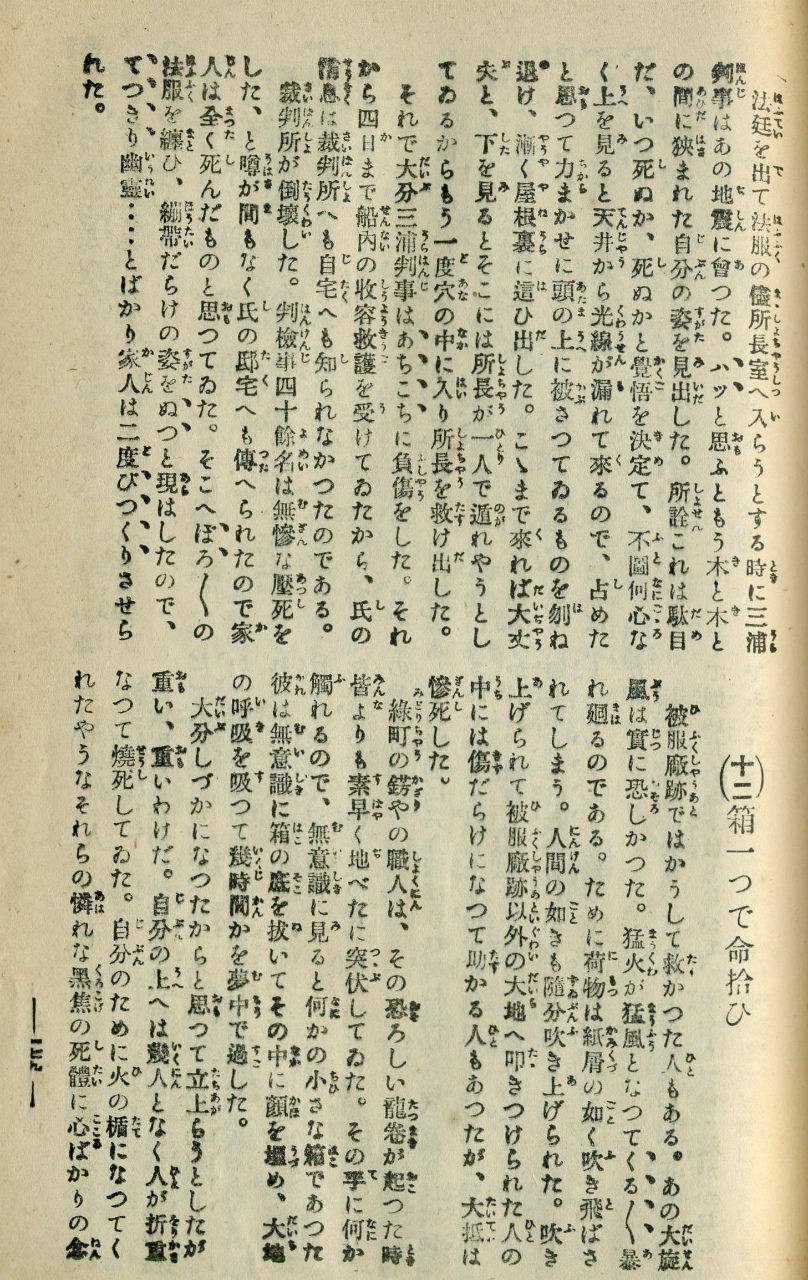 法廷を出て法服の儘所長室へ入らうとする時に三浦
判事はあの地震に會つた。ハッと思ふともう木と木と
の間に狹まれた自分の姿を見出した。所詮これは駄目
だ、いつ死ぬか、死ぬかと覺悟を決定て、不圖何心な
く上を見ると天井から光線が漏れて來るので、占めた
と思つて力まかせに頭の上に被さつてゐるものを刎ね
退け、漸く屋根裏に這ひ出した。こゝまで來れば大丈
夫と、下を見るとそこには所長が一人で遁れやうとし
てゐるからもう一度穴の中に入り所長を救け出した。
それで大分三浦判事はあちこちに負傷をした。それ
から四日まで船内の收容救護を受けてゐたから、氏の
消息は裁判所へも自宅へも知られなかつたのである。
裁判所が倒壞した。判檢事四十餘名は無慘な壓死を
した、と噂が間もなく氏の邸宅へも傳へられたので家
人は全く死んだものと思つてゐた。そこへぼろ〱の
法服を纏ひ、繃帶だらけの姿をぬつと現はしたので、
てつきり幽靈‥‥とばかり家人は二度びつくりさせら
れた。
(十二)箱一つで命拾ひ
被服廠跡ではかうして救かつた人もある。あの大旋
風は實に恐しかつた。猛火が猛風となつてくる〱暴
れ廻るのである。ために荷物は紙屑の如く吹き飛ばさ
れてしまう。人間の如きも隨分吹き上げられた。吹き
上げられて被服廠跡以外の大地へ叩きつけられた人の
中には傷だらけになつて助かる人もあつたが、大抵は
慘死した。
綠町の錺やの職人は、その恐ろしい龍卷が起つた時
皆よりも素早く地べたに突伏してゐた。その手に何か
觸れるので、無意識に見ると何かの小さな箱であつた
彼は無意識に箱の底を拔いてその中に顏を埋め、大地
の呼吸を吸つて幾時間かを夢中で過した。
大分しづかになつたからと思つて立上らうとしたが
重い、重いわけだ。自分の上へは幾人となく人が折重
なつて燒死してゐた。自分のために火の楯になつてく
れたやうなそれらの憐れな黑焦の死體に心ばかりの念